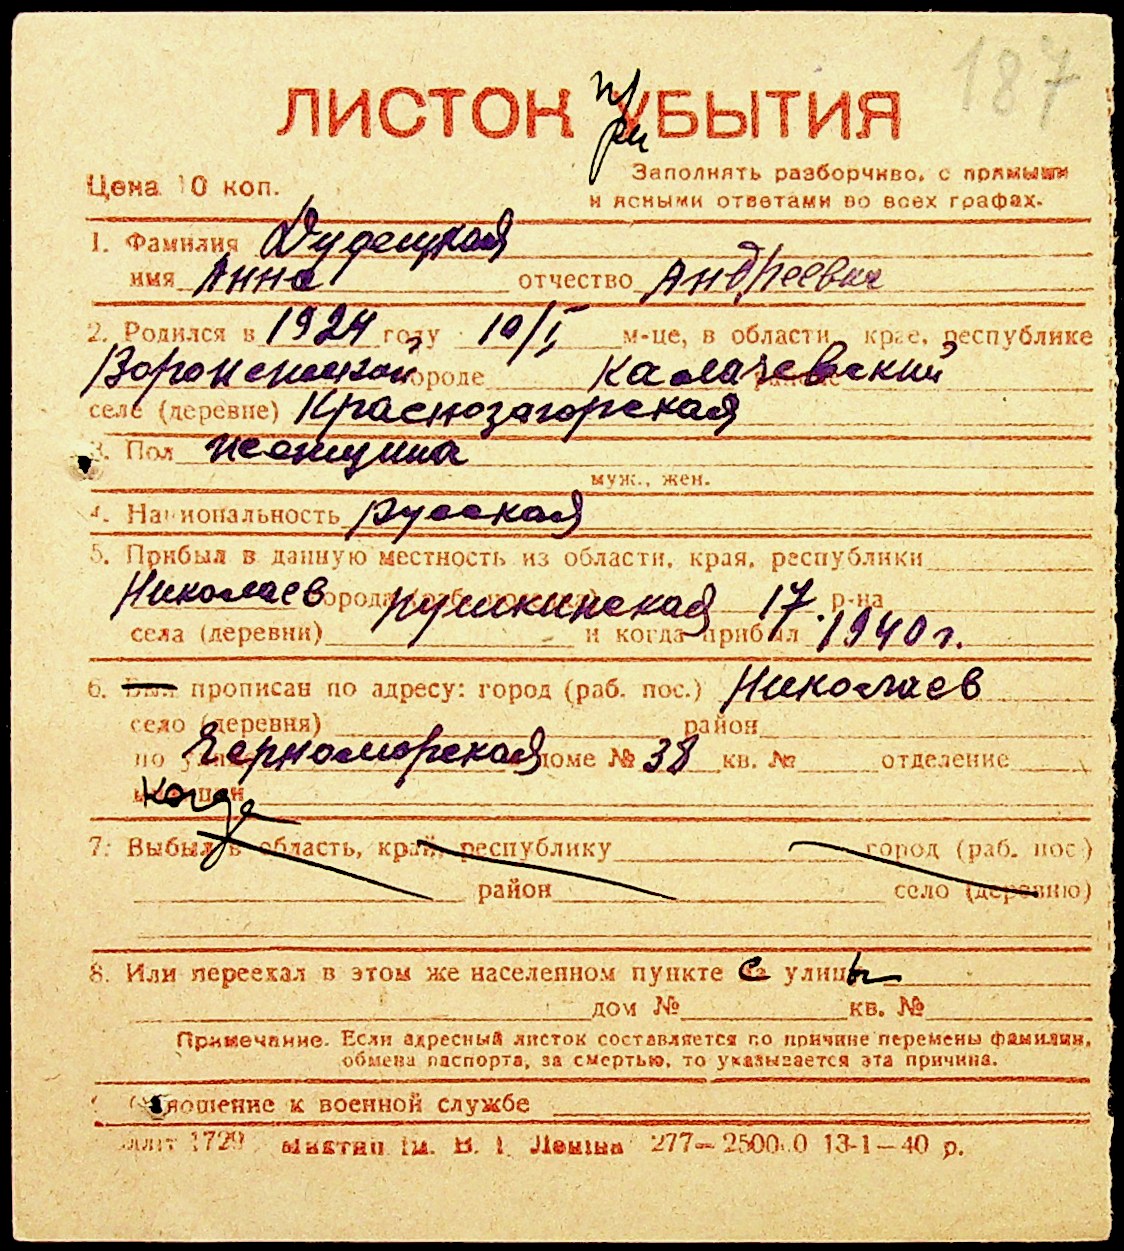 187
ЛИСТОК УБЫТИЯ
при
Цена 10 коп.
Заполнять разборчиво, с прямыми
и ясными ответами во всех графах.
1. Фамилия Дудецкая
имя Анна отчество Андреевич
2. Родился в 1924 году 10/I м-це, в области, крае, республике
Воронежской городе Калачевский
селе (деревне) Краснозагорская
3. Пол женщина
муж., жен.
4. Национальность русская
5. Прибыл в данную местность из области, края, республики
Николаев города Пушкинская 17 р-на
села (деревни) и когда прибыл 1940 г.
6. Был прописан по адресу: город (раб. пос.) Николаев
село (деревня) район
по Черноморская доме № 38 кв. № отделение
когда
7. Выбыл в область, край, республику город (раб. пос.)
район село (деревню)
8. Или переехал в этом же населенном пункте с улицы
дом № кв. №
Примечание. Если адресный листок составляется по причине перемены фамилии,
обмена паспорта, за смертью, то указывается эта причина.
Отношение к военной службе
1729 ім. В. І. Леніна 277— 13-1—40 р.